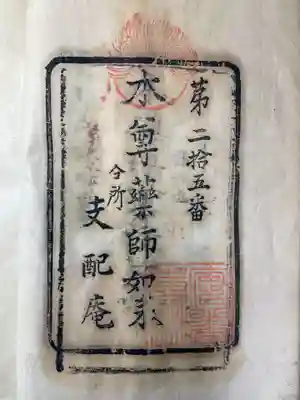 第二拾五番
本尊藥師如来
今所
支配庵